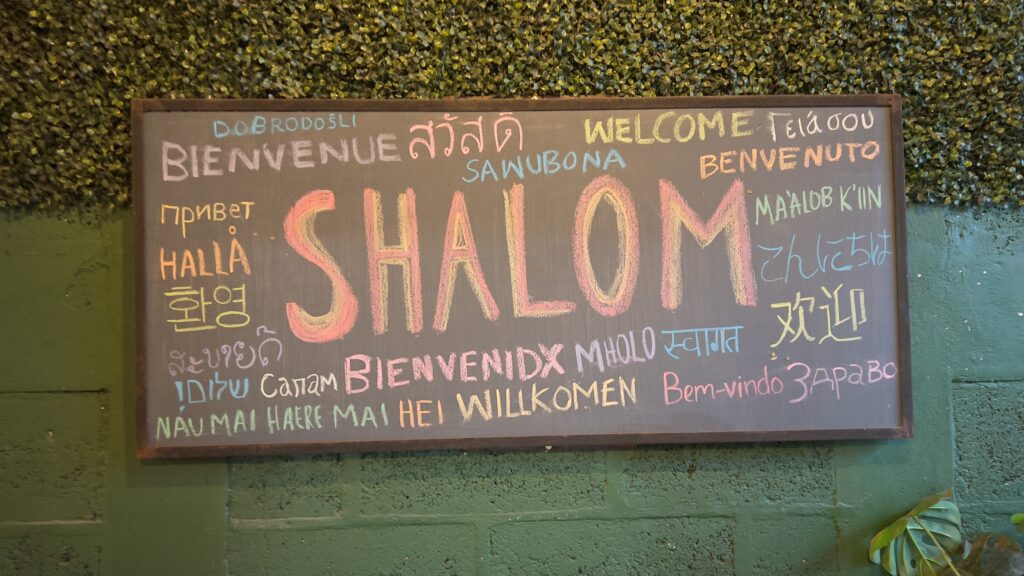 DOBRODOŠLI
BIENVENUE สวัสดี WELCOME Γειά σου
SAWUBONA BENVENUTO
SHALOM
привет
HALLÅ
환영
MA'ALOB K'IIN
こんにちは
欢迎
ສະບາຍດີ
BIENVENIDX MHOLO स्वागत
שלום! Салам
WILLKOMEN Bem-vindo Здраво
NAU MAI HAERE MAI HEI